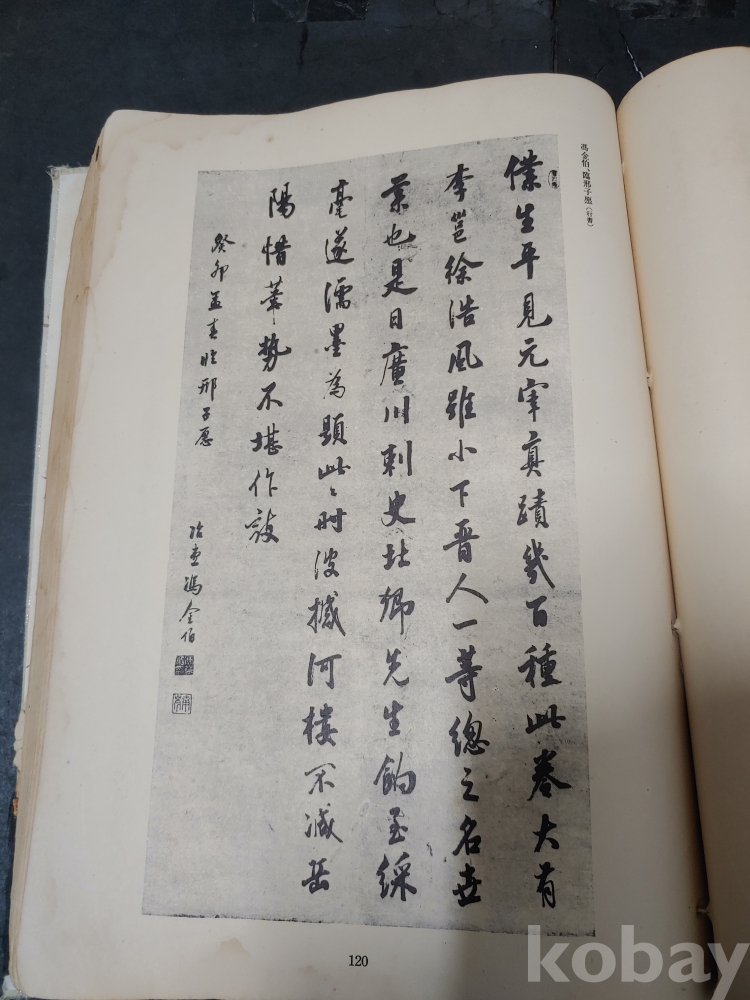 馮金伯、臨邢子愿(行書)
僕生平見元宰真蹟幾百種此卷大有
李邕徐浩風雖小下晉人一等總之名世
業也是日廣川刺史壯卿先生餉玉綵
毫遂濡墨為題此時波撼河樓不減岳
陽惜筆勢不堪作敵
癸卯孟春臨邢子愿
冶堂馮金伯
120
kobay